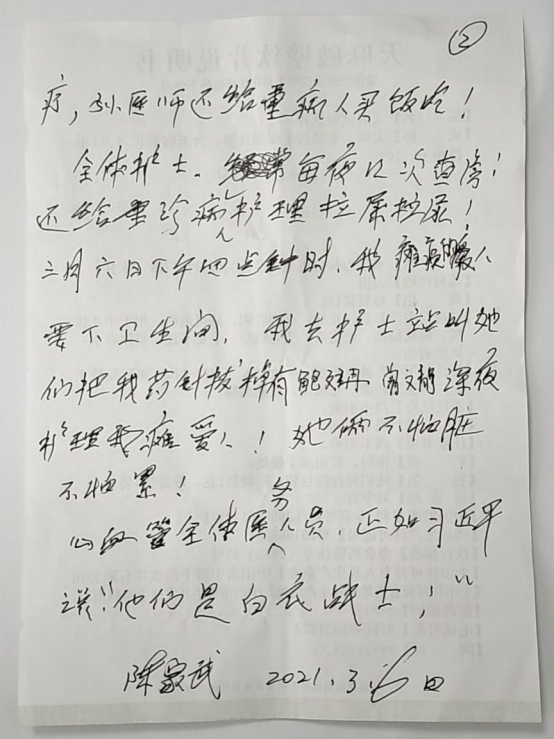 ②
疗，孙医师还给重病人买饭吃！
全体护士。每夜12次查房！
还给重诊病人护理拉屎拉尿！
三月六日下午四点钟时，我瘫痪爱人
要下卫生间，我去护士站叫她
们把我药针拔掉有鲍文丹 曾文静深夜
护理我瘫爱人！她俩不怕脏
不怕累！
心血管全体医务人员，正如习近平
说："他们是白衣战士！"
陈家武 2021.3.6日